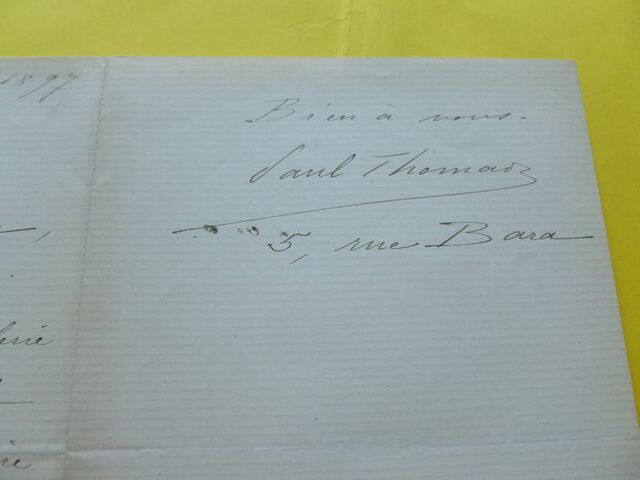 1897
Bien à vous.
Paul Thomas
5, rue Bara